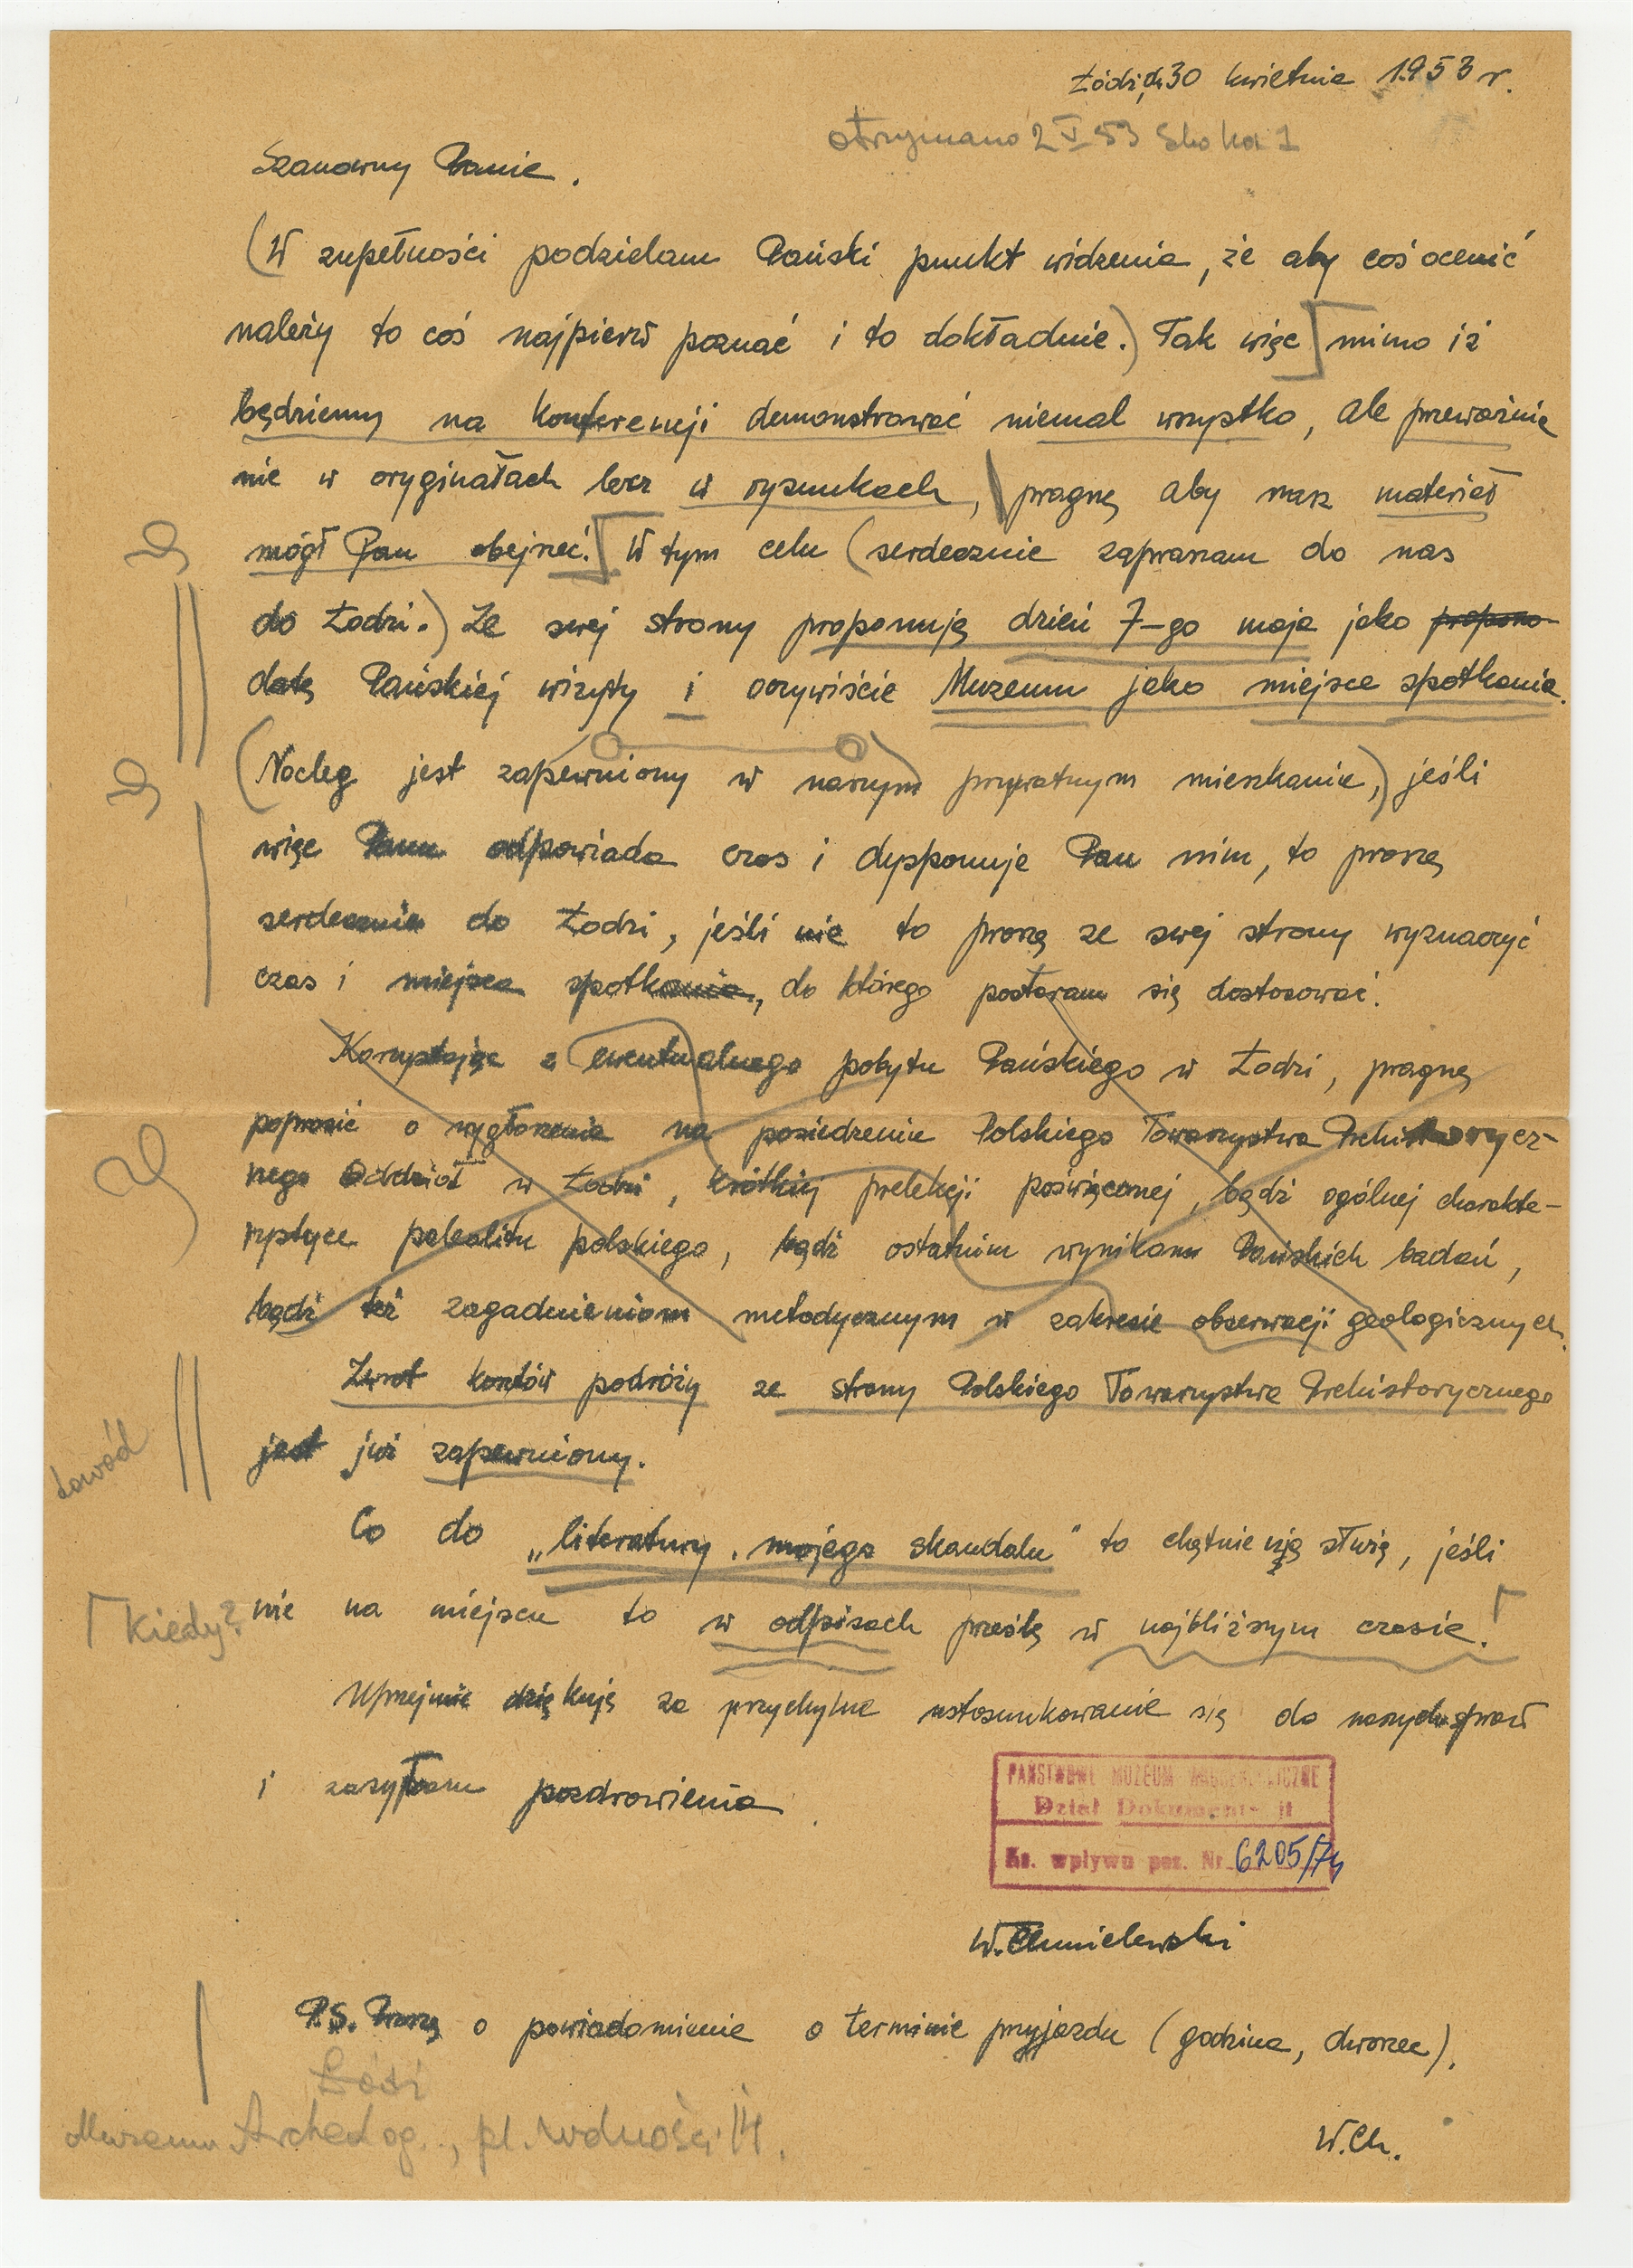 Łódź, dn 30 kwietnia 1953 r.
otrzymano 2 V 53
Szanowny Panie.
(W zupełności podzielam Pański punkt widzenia, że aby coś ocenić
należy to coś najpierw poznać i to dokładnie.) Tak więc] mimo iż
będziemy na konferencji demonstrować niemal wszystko, ale przeważnie
nie w oryginałach lecz w rysunkach, pragnę aby nasz materiał
mógł Pan obejrzeć.] W tym celu (serdecznie zapraszam do nas
do Łodzi.) Ze swej strony proponuję dzień 7-go maja jako propono-
datę Pańskiej wizyty i oczywiście Muzeum jako miejsce spotkania.
(Nocleg jest zapewniony w naszym prywatnym mieszkanie,) jeśli
więc Panu odpowiada czas i dysponuje Pan nim, to proszę
serdecznie do Łodzi, jeśli nie to proszę ze swej strony wyznaczyć
czas i miejsce spotkania, do którego postaram się dostosować.
Korzystając z ewentualnego pobytu Pańskiego w Łodzi, pragnę
poprosić o wygłoszenie na posiedzenie Polskiego Towarzystwa Prehistorycz-
nego Oddział w Łodzi, krótkiej prelekcji poświęconej, bądź ogólnej charakte-
rystyce paleolitu polskiego, bądź ostatnim wynikom Pańskich badań,
bądź też zagadnieniom metodycznym w zakresie obserwacji geologicznych.
Zwrot kosztów podróży ze strony Polskiego Towarzystwa Prehistorycznego
jest już zapewniony.
dowód
Co do „literatury mojego skandalu" to chętnie nią służę, jeśli
nie na miejscu to w odpisach prześlę w najbliższym czasie!
Kiedy?
Uprzejmie dziękuję za przychylne ustosunkowanie się do naszych spraw
i zasyłam pozdrowienia.
PAŃSTWOWE MUZEUM ARCHEOLOGICZNE
Dział Dokumentacji
Ks. wpływu poz. Nr 6205/74
W. Chmielewski
P.S. Proszę o powiadomienie o terminie przyjazdu (godzina, dworzec).
Łódź
Muzeum Archeolog., pl. Wolności 14.
W.Ch.